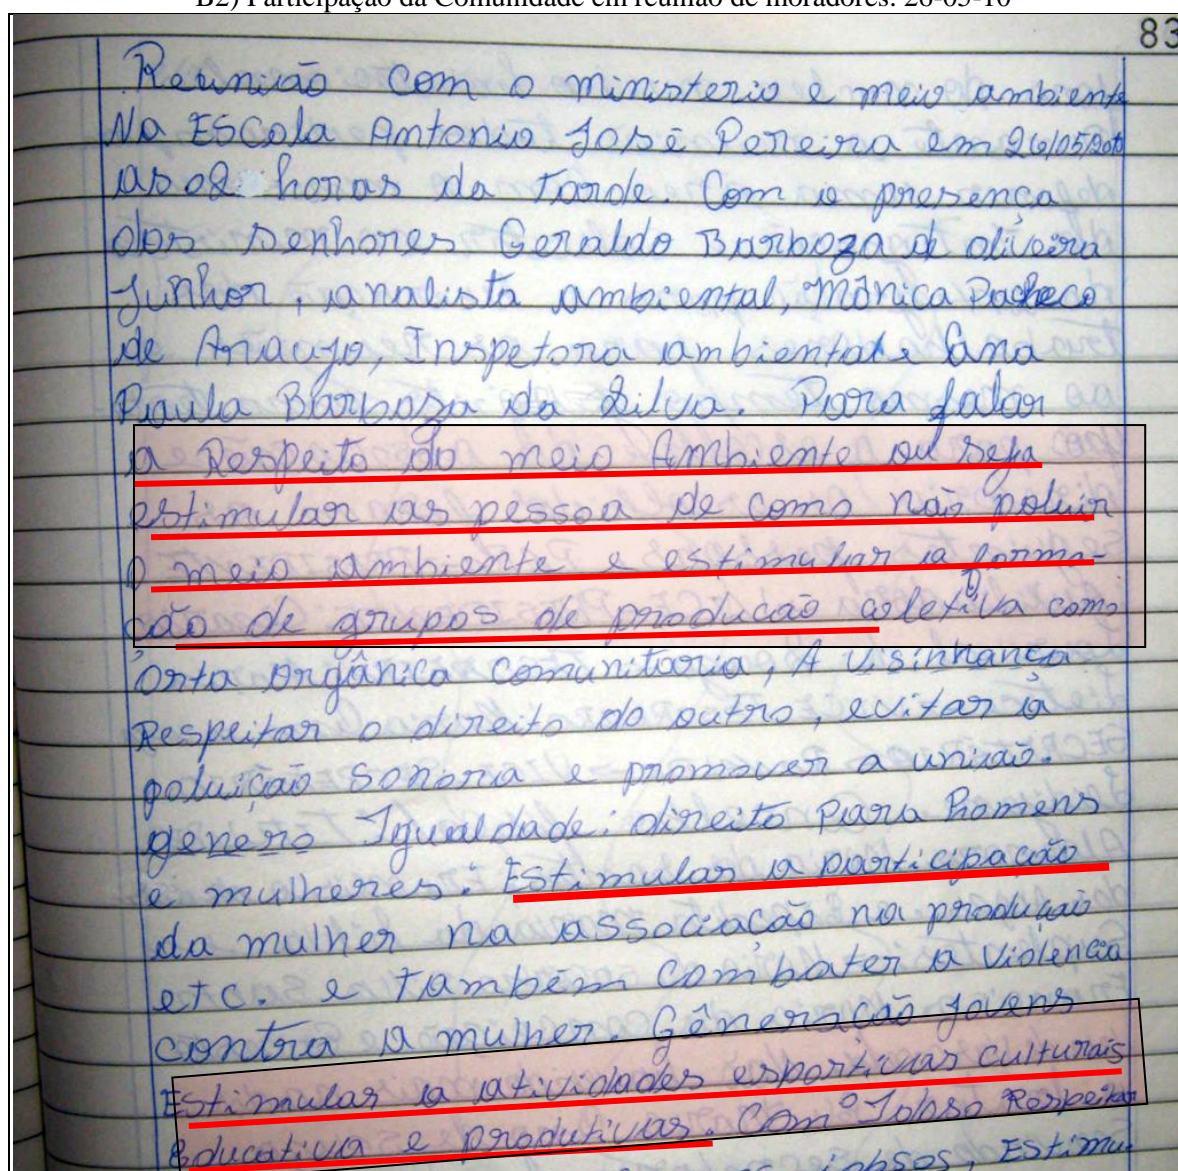 B2) Participação da Comunidade em reunião de moradores: 26-05-10
83
Reunião com o ministerio e meio ambiente
Na EScola Antonio José Pereira em 26/05/2010
as 02 horas da tarde. Com a presença
dos senhores Geraldo Barboza de oliveira
Junhor, analista ambiental, Mônica Pacheco
de Araujo, Inspetora ambiental e Sana
Paula Barboza da Silva. Para falar
a Respeito do meio Ambiente ou seja
estimular as pessoa de como não poluir
o meio ambiente e estimular a forma-
ção de grupos de producão coletiva como
orta orgânica comunitaria, A visinhança
Respeitar o direito do outro, evitar a
poluição sonora e promover a união.
genero Igualdade: direito para homens
e mulheres: Estimular a participação
da mulher na associacão na produção
etc. e também combater a violencia
contra a mulher. Gêneração jovens
Estimular a atividades esportivas culturais
Educativa e produtivas. Com o Idoso Respeitar
idosos, Estimu